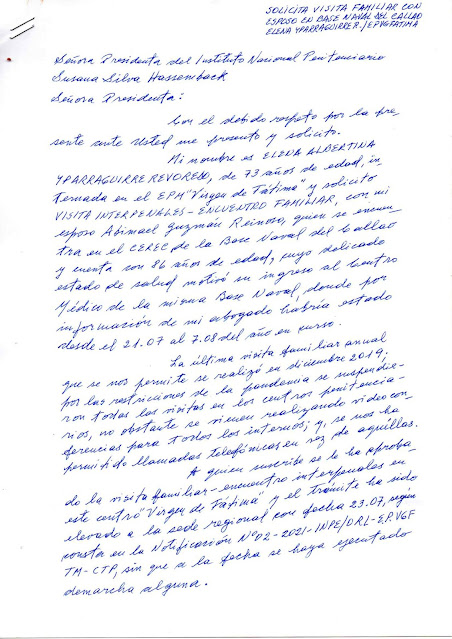 SOLICITA VISITA FAMILIAR CON
ESPOSO EN BASE NAVAL DEL CALLAO
ELENA YPARRAGUIRRE R./EPVGFATIMA
Señora Presidenta del Instituto Nacional Penitenciario
Susana Silva Hassemback
Señora Presidenta:
Con el debido respeto por la pre-
sente ante Usted me presento y solicito.
Mi nombre es ELENA ALBERTINA
YPARRAGUIRRE REVOREDO, de 73 años de edad, in
ternada en el EPM "Virgen de Fátima" y solicito
VISITA INTERPENALES-ENCUENTRO FAMILIAR, con mi
esposo Abimael Guzmán Reinoso, quien se encuen
tra en el CEREC de la Base Naval del Callao
y cuenta con 86 años de edad, cuyo delicado
estado de salud motivó su ingreso al Centro
Médico de la misma Base Naval, donde por
información de mi abogado habría estado
desde el 21.07 al 7.08 del año en curso.
La última visita familiar anual
que se nos permite se realizó en diciembre 2019,
por las restricciones de la pandemia se suspendie-
ron todas las visitas en los centros penitencia-
rios, no obstante se vienen realizando video con-
ferencias para todos los internos; y, se nos ha
permitido llamadas telefónicas en vez de aquéllas.
A quien suscribe se le ha aproba-
do la visita familiar-encuentro interpenales en
este centro "Virgen de Fátima" y el trámite ha sido
elevado a la sede regional con fecha 23.07, según
consta en la Notificación Nº02-2021-INPE/ORL-E.P.VGF
TM-CTP, sin que a la fecha se haya ejecutado
demarcha alguna.